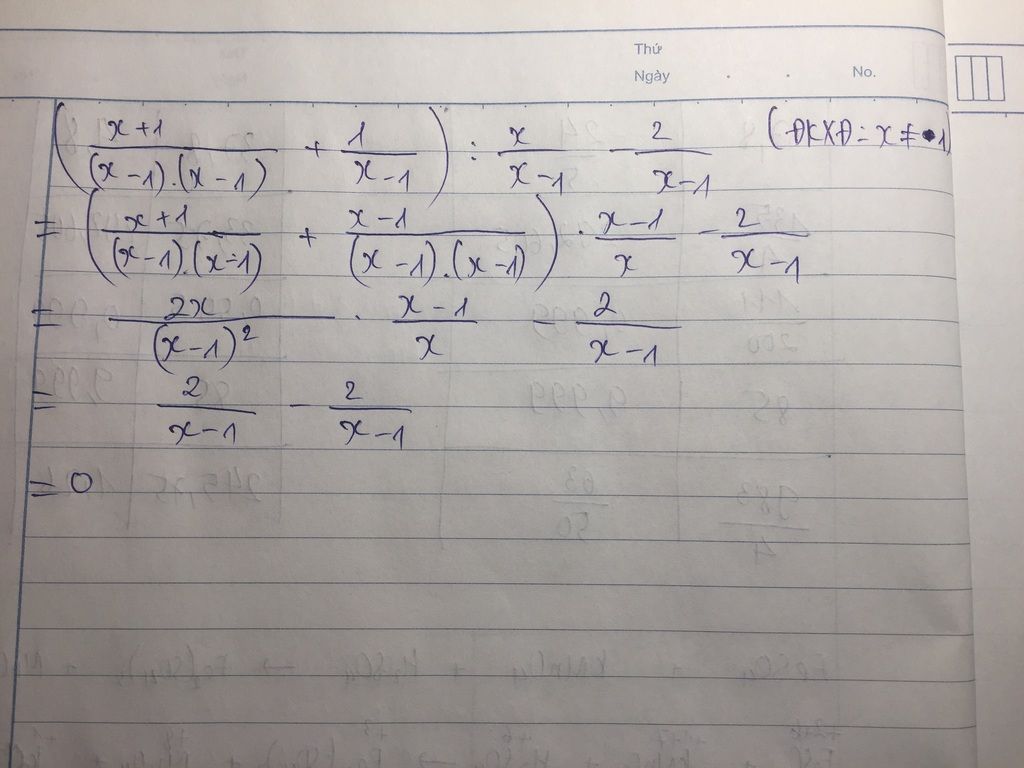 Thứ
Ngày . . No.
( (x+1)/((x-1).(x-1)) + 1/(x-1) ) : x/(x-1) - 2/(x-1) (ĐKXĐ: x ≠ 1)
= ( (x+1)/((x-1).(x-1)) + (x-1)/((x-1).(x-1)) ) . (x-1)/x - 2/(x-1)
= 2x/(x-1)² . (x-1)/x - 2/(x-1)
= 2/(x-1) - 2/(x-1)
= 0